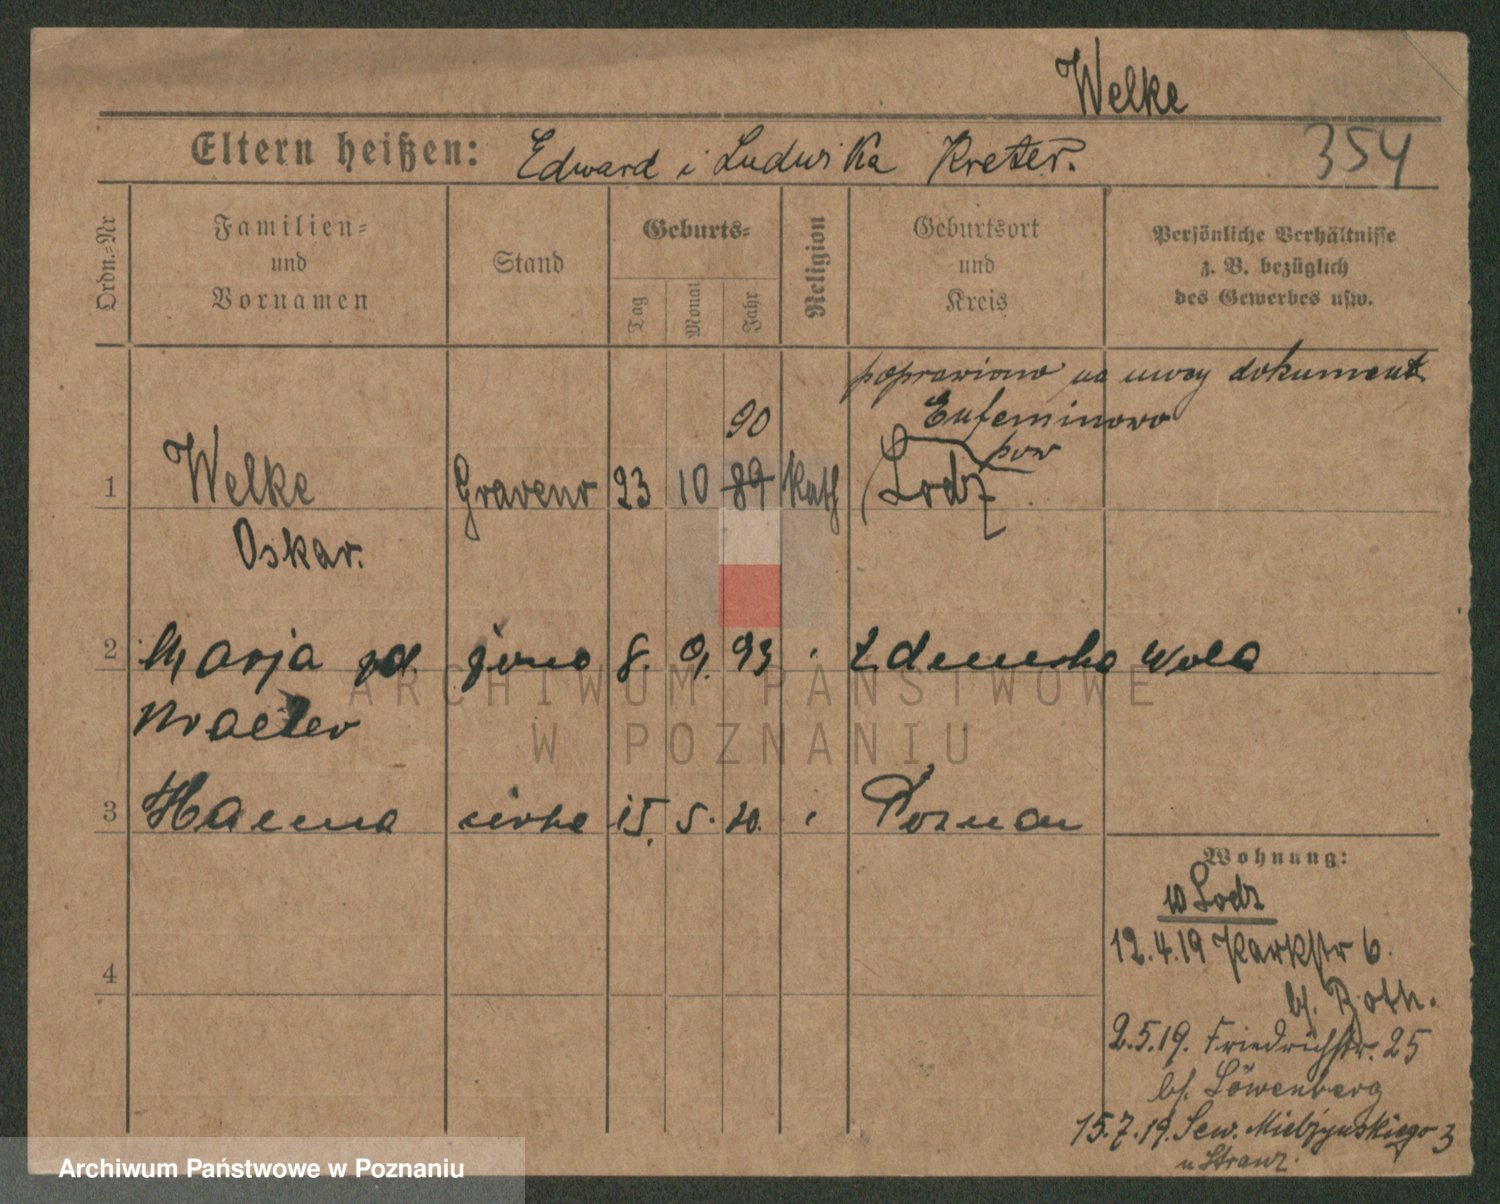 Welke
Eltern heißen: Edward i Ludwika Kreter. 354
Ordn.=Nr
Familien=
und
Vornamen
Stand
Geburts=
Tag
Monat
Jahr
Religion
Geburtsort
und
Kreis
Persönliche Verhältnisse
z. B. bezüglich
des Gewerbes usw.
poprawiono na mocy dokument
90
Eufeminowo
pow
1 Welke Graveur 23 10 89 Kath Lodz
Oskar.
2 Marja zd żona 8. 9. 93 " Zdunska Wola
Kraeter
3 Hanna córka 15. 5. 20. " Poznan
4
Wohnung:
w Lodz
12.4.19 Parkstr 6.
bf. Roth.
2.5.19. Friedrichstr. 25
bf. Löwenberg
15.7.19. Sew. Mielżynskiego 3
u Stranz.
ARCHIWUM PAŃSTWOWE
W POZNANIU
Archiwum Państwowe w Poznaniu